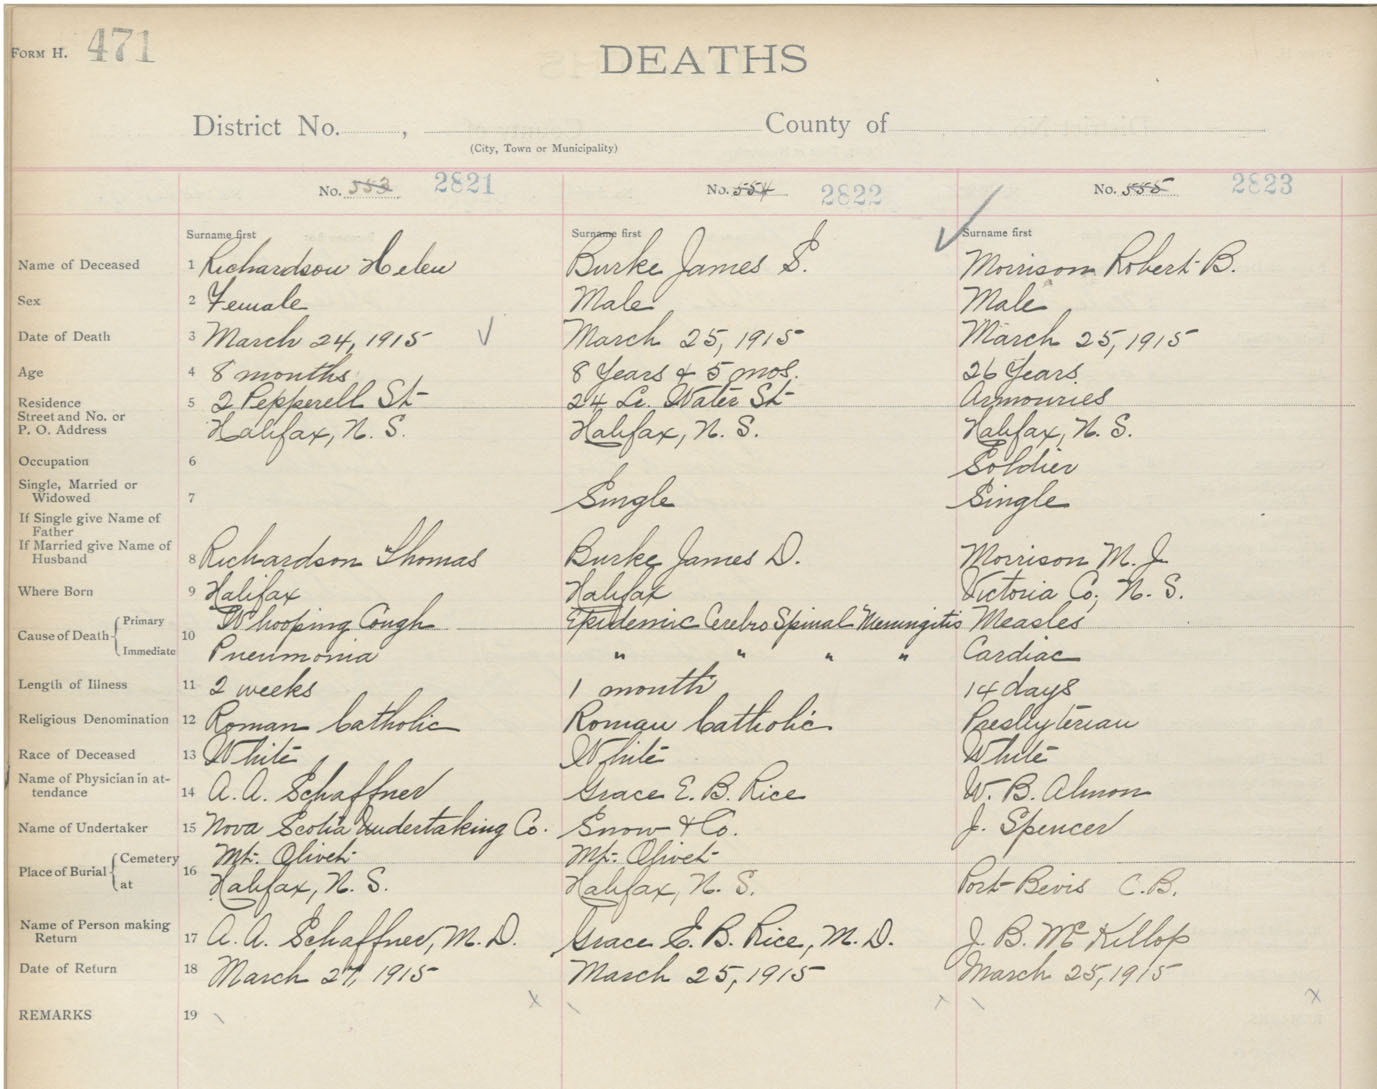 Form H. 471
DEATHS
District No. , County of
(City, Town or Municipality)
No. 553 2821 No. 554 2822 No. 555 2823
Surname first Surname first Surname first
Name of Deceased 1 Richardson Helen Burke James S. Morrison Robert B.
Sex 2 Female Male Male
Date of Death 3 March 24, 1915 March 25, 1915 March 25, 1915
Age 4 8 months 8 Years & 5 mos. 26 Years
Residence 5 2 Pepperell St 24 Lr. Water St Armouries
Street and No. or
P. O. Address Halifax, N. S. Halifax, N. S. Halifax, N. S.
Occupation 6 Soldier
Single, Married or
Widowed 7 Single Single
If Single give Name of
Father
If Married give Name of
Husband 8 Richardson Thomas Burke James D. Morrison M. J.
Where Born 9 Halifax Halifax Victoria Co, N. S.
Cause of Death 10 Primary Whooping Cough Epidemic Cerebro Spinal Meningitis Measles
Immediate Pneumonia " " " " Cardiac
Length of Illness 11 2 weeks 1 month 14 days
Religious Denomination 12 Roman Catholic Roman Catholic Presbyterian
Race of Deceased 13 White White White
Name of Physician in at-
tendance 14 A. A. Schaffner Grace E. B. Rice W. B. Almon
Name of Undertaker 15 Nova Scotia Undertaking Co. Snow & Co. J. Spencer
Place of Burial 16 Cemetery Mt. Olivet Mt. Olivet
at Halifax, N. S. Halifax, N. S. Port Bevis C. B.
Name of Person making
Return 17 A. A. Schaffner, M. D. Grace E. B. Rice, M. D. J. B. McKillop
Date of Return 18 March 27, 1915 March 25, 1915 March 25, 1915
REMARKS 19